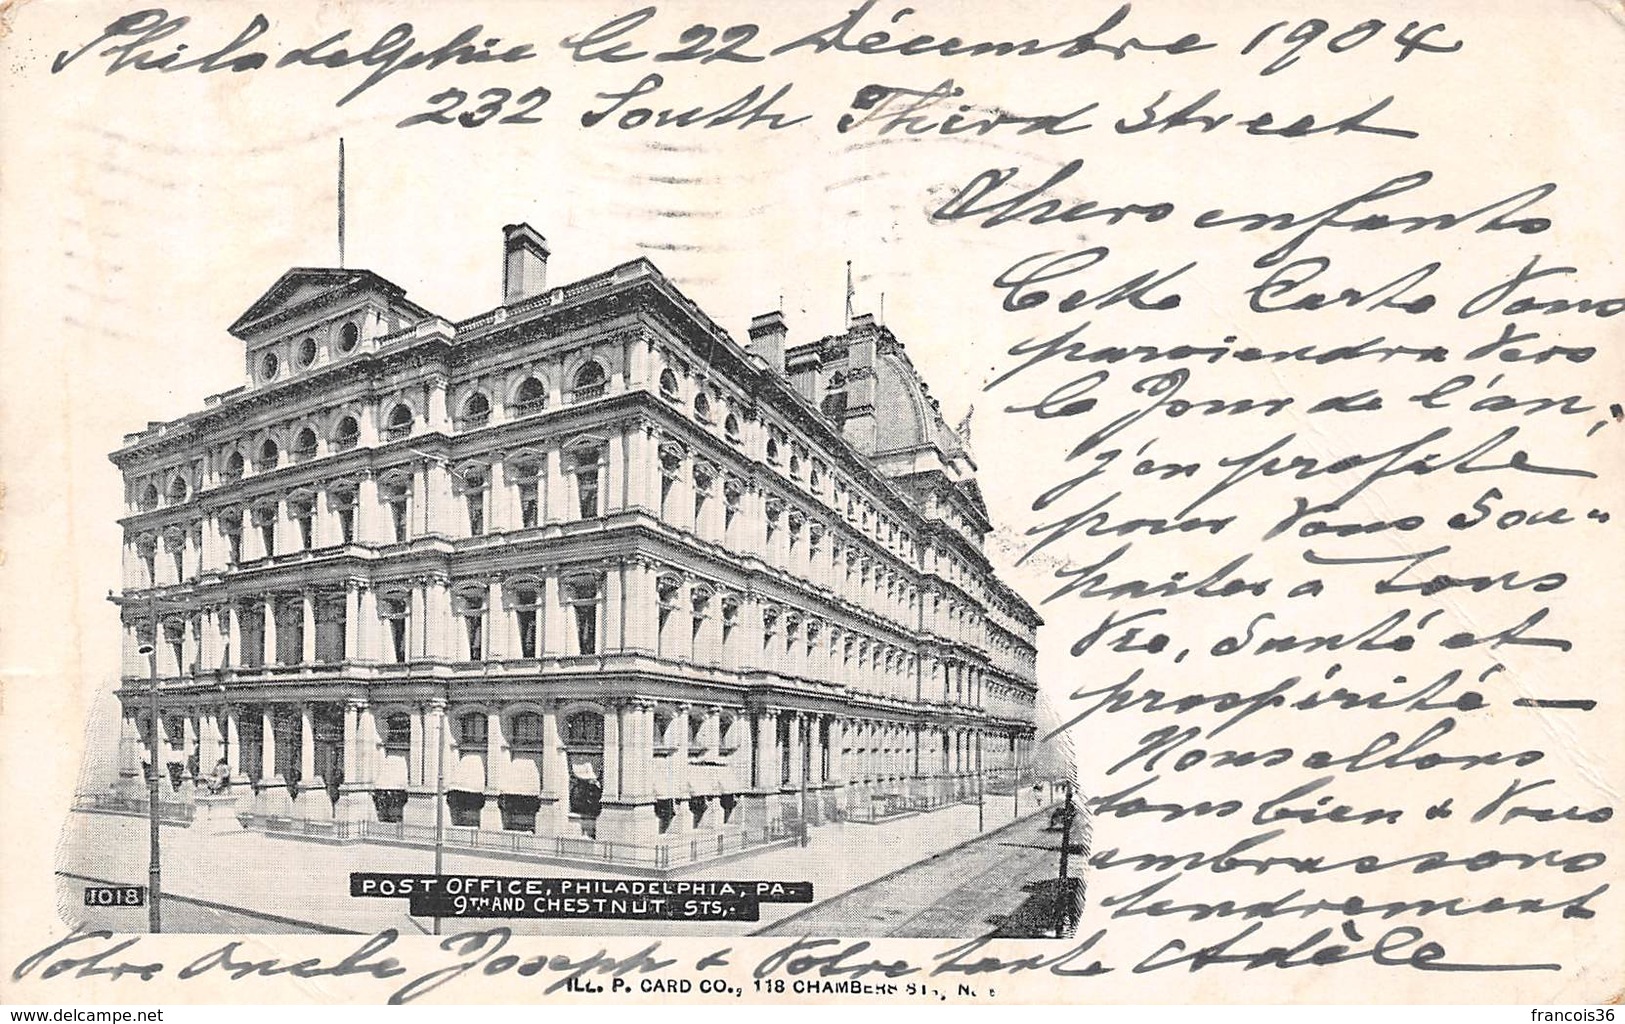 Philadelphie le 22 Décembre 1904
232 South Third Street
Chers enfants
Cette Carte Vous
parviendra Vers
le Jour de l'an,
j'en profite
pour Vous Sou-
haiter à tous
Vie, Santé et
prospérité —
Nous allons
tous bien & Vous
embrassons
tendrement
Votre Oncle Joseph & Votre tante Adèle
1018
POST OFFICE, PHILADELPHIA, PA.
9TH AND CHESTNUT STS.
ILL. P. CARD CO., 118 CHAMBERS ST., N.
delcampe.net
francois36